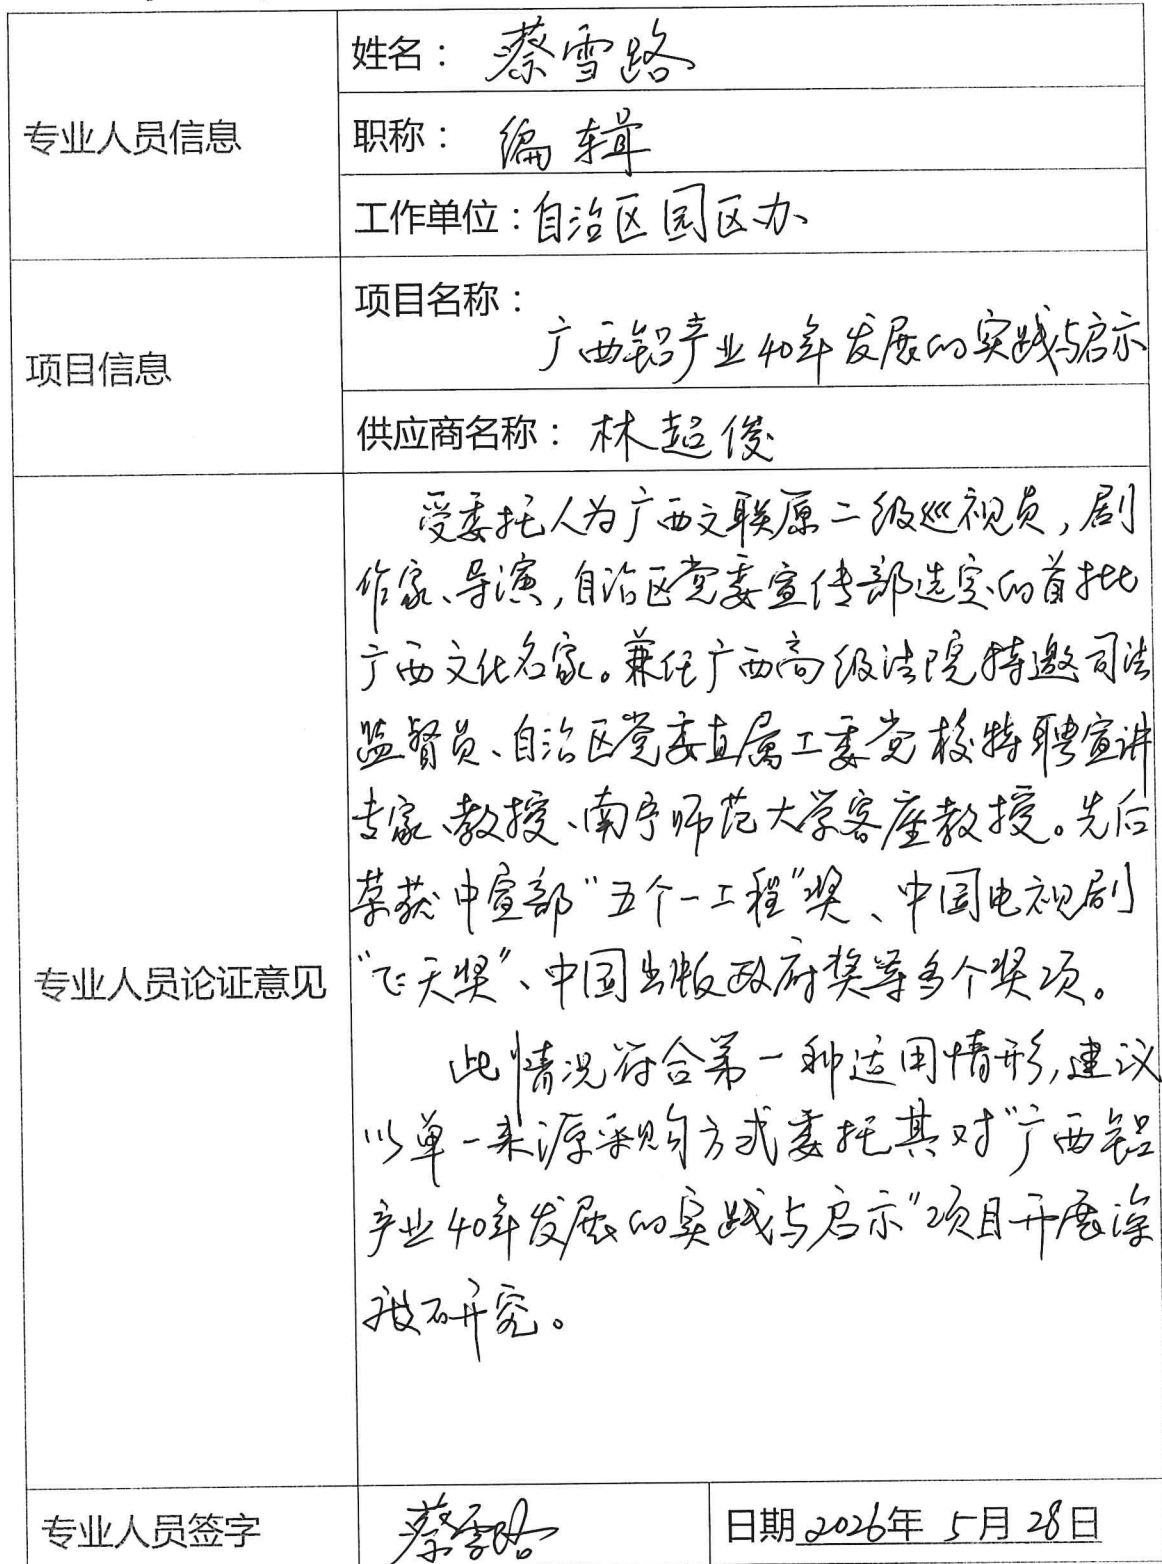 专业人员信息
姓名：蔡雪路
职称：编辑
工作单位：自治区园区办
项目信息
项目名称：
广西铝产业40年发展的实践与启示
供应商名称：林超俊
专业人员论证意见
受委托人为广西文联原二级巡视员，剧
作家、导演，自治区党委宣传部选定的首批
广西文化名家。兼任广西高级法院特邀司法
监督员、自治区党委直属工委党校特聘宣讲
专家、教授、南宁师范大学客座教授。先后
荣获中宣部“五个一工程”奖、中国电视剧
“飞天奖”、中国出版政府奖等多个奖项。
此情况符合第一种适用情形，建议
以单一来源采购方式委托其对“广西铝
产业40年发展的实践与启示”项目开展深
度研究。
专业人员签字 蔡雪路 日期2026年5月28日